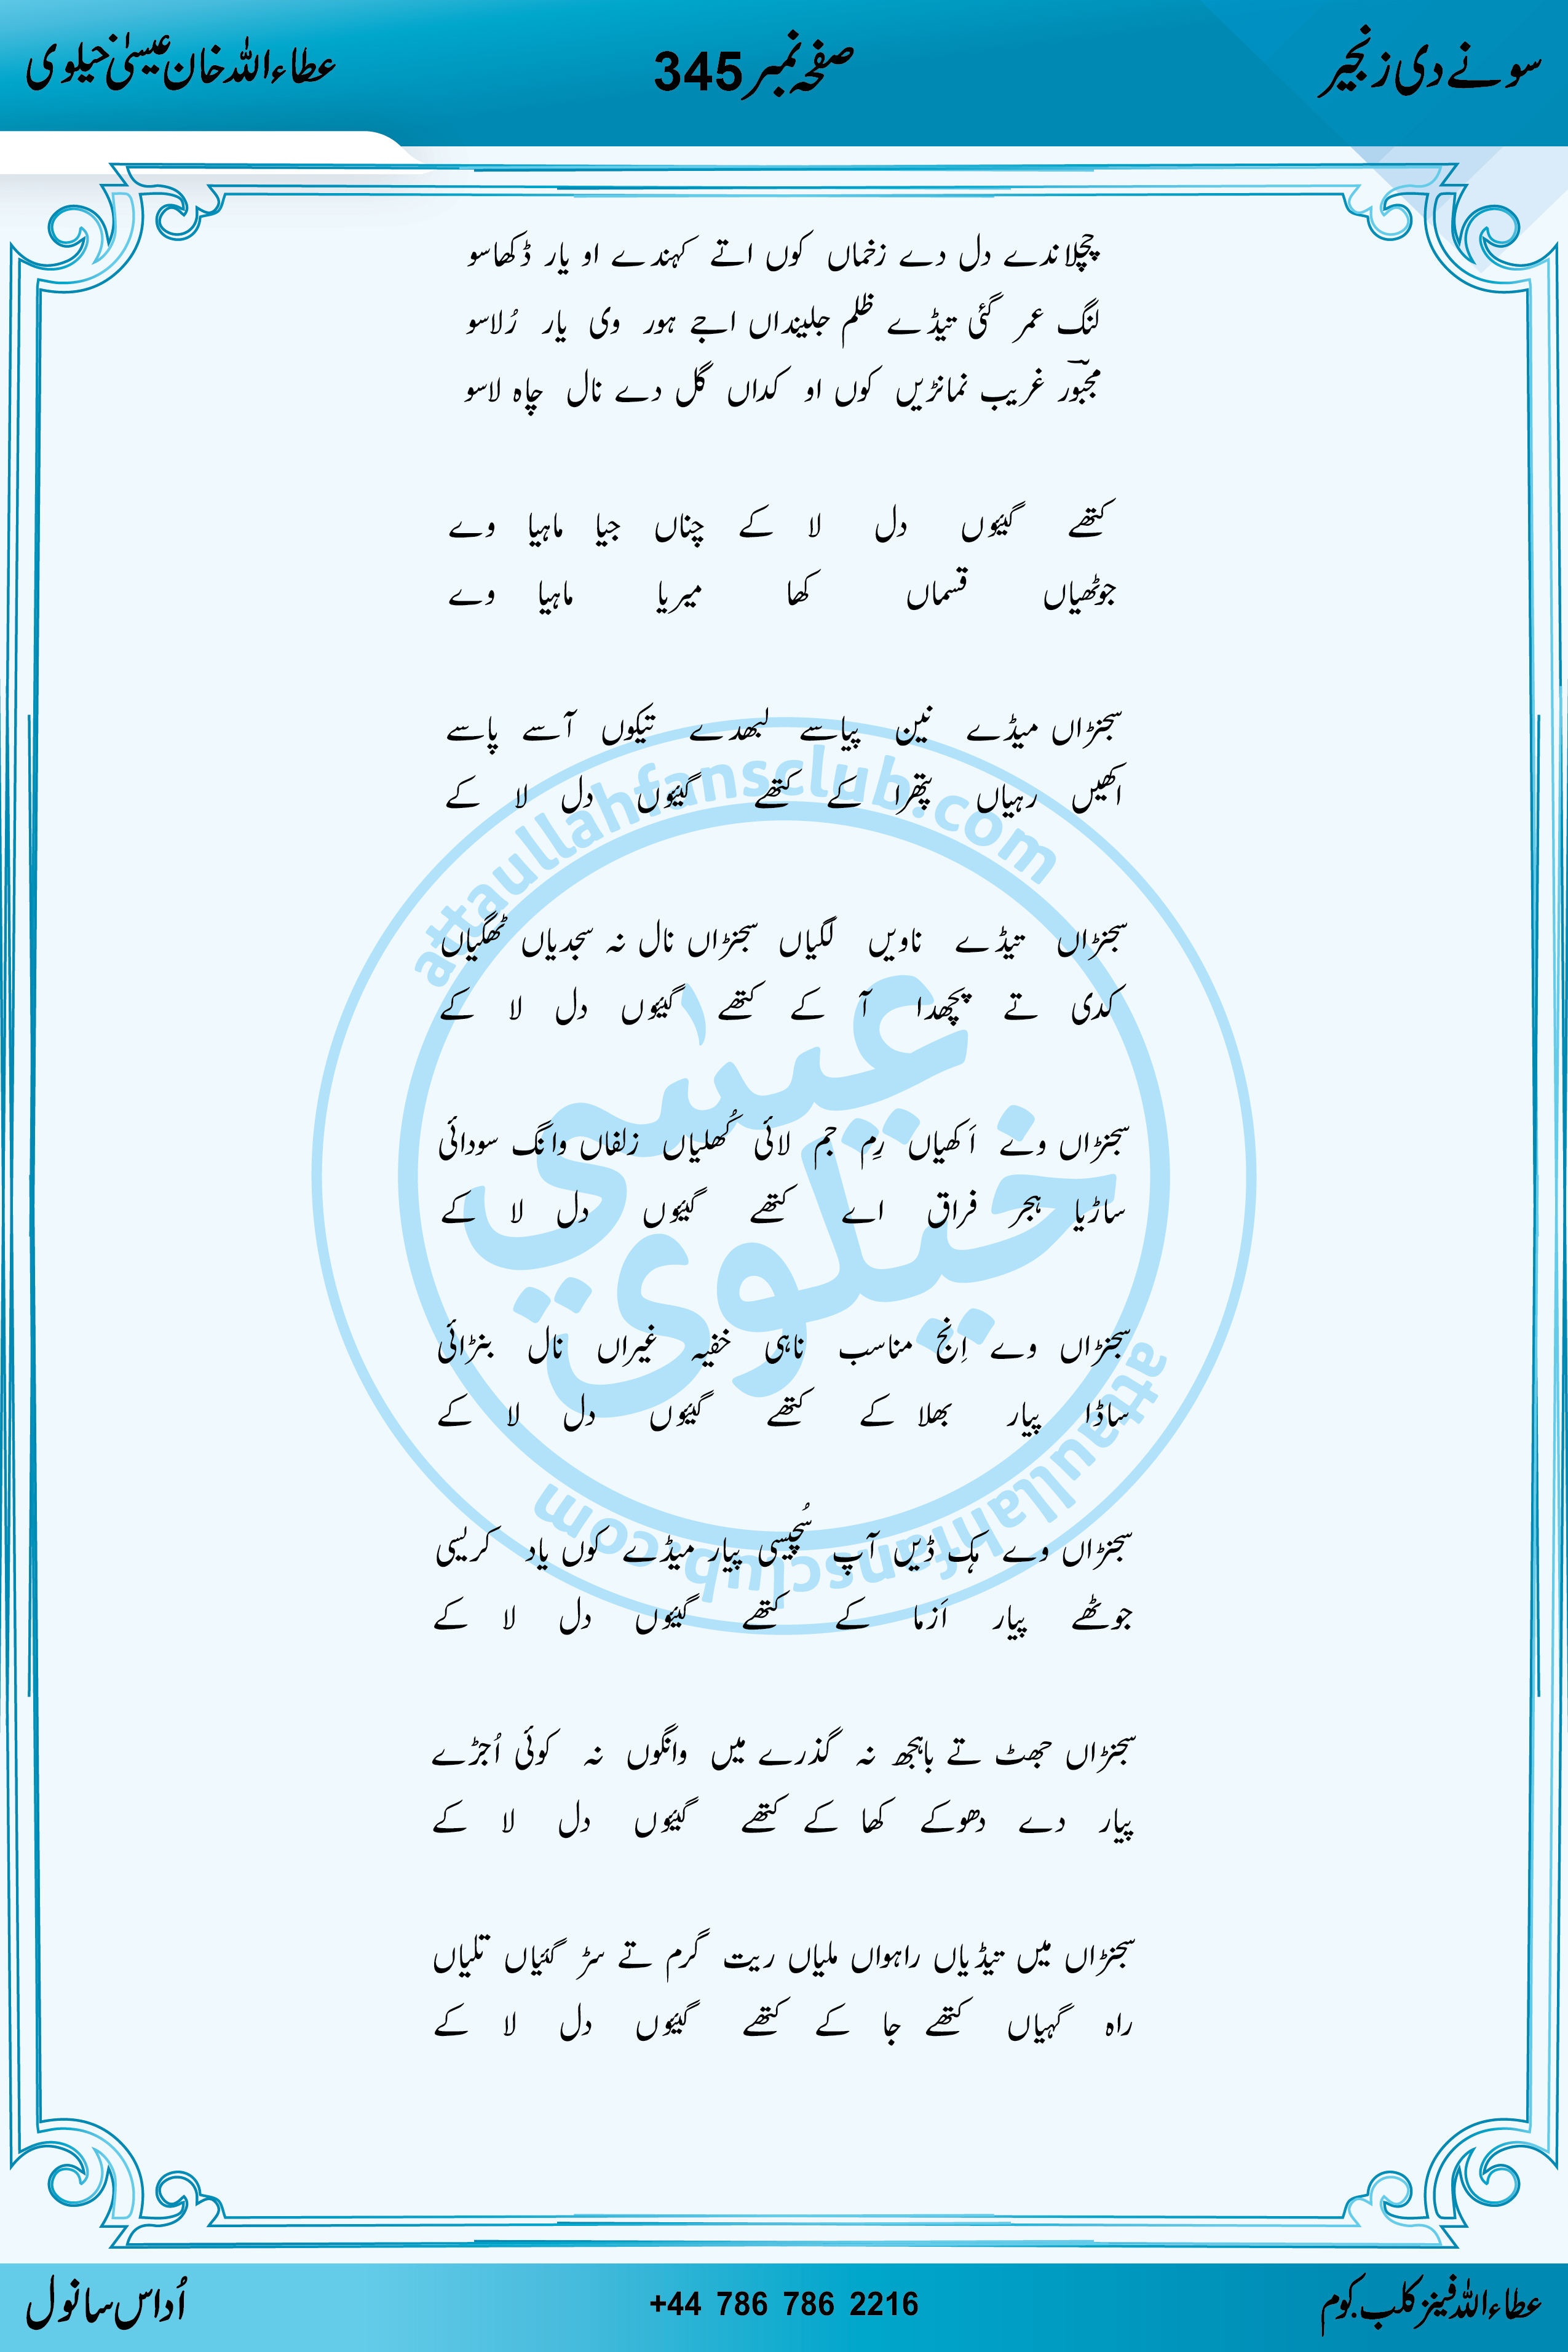 سونے دی زنجیر
صفحہ نمبر 345
عطاءاللہ خان عیسیٰ خیلوی
چھلاندے دل دے زخماں کوں اتے کہندے او یار ڈکھاسو
لنگ عمر گئی تیڈے ظلم جلینداں اجے ہور وی یار رُلاسو
مجبورؔ غریب نمانڑیں کوں او کداں گل دے نال چاہ لاسو
کتھے گیئوں دل لا کے چناں جیا ماہیا وے
جوٹھیاں قسماں کھا میریا ماہیا وے
سجنڑاں میڈے نین پیاسے لبھدے تیکوں آسے پاسے
اکھیں رہیاں پتھرا کے کتھے گیئوں دل لا کے
سجنڑاں تیڈے ناویں لگیاں سجنڑاں نال نہ سجدیاں ٹھگیاں
کدی تے پچھدا آ کے کتھے گیئوں دل لا کے
سجنڑاں وے اَکھیاں رِم جم لائی کُھلیاں زلفاں وانگ سودائی
ساڑیا ہجر فراق اے کتھے گیئوں دل لا کے
سجنڑاں وے اِنج مناسب ناہی خفیہ غیراں نال بنڑائی
ساڈا پیار بھلا کے کتھے گیئوں دل لا کے
سجنڑاں وے ہک ڈیں آپ سُچیسی پیار میڈے کوں یاد کریسی
جوٹھے پیار اَزما کے کتھے گیئوں دل لا کے
سجنڑاں جھٹ تے باہجھ نہ گذرے میں وانگوں نہ کوئی اُجڑے
پیار دے دھوکے کھا کے کتھے گیئوں دل لا کے
سجنڑاں میں تیڈیاں راہواں ملیاں ریت گرم تے سڑ گئیاں تلیاں
راہ گہیاں کتھے جا کے کتھے گیئوں دل لا کے
attaullahfansclub.com
عیسٰی
خیلوی
attaullahfansclub.com
عطاءاللہ فینز کلب.کوم
+44 786 786 2216
اُداس سانول